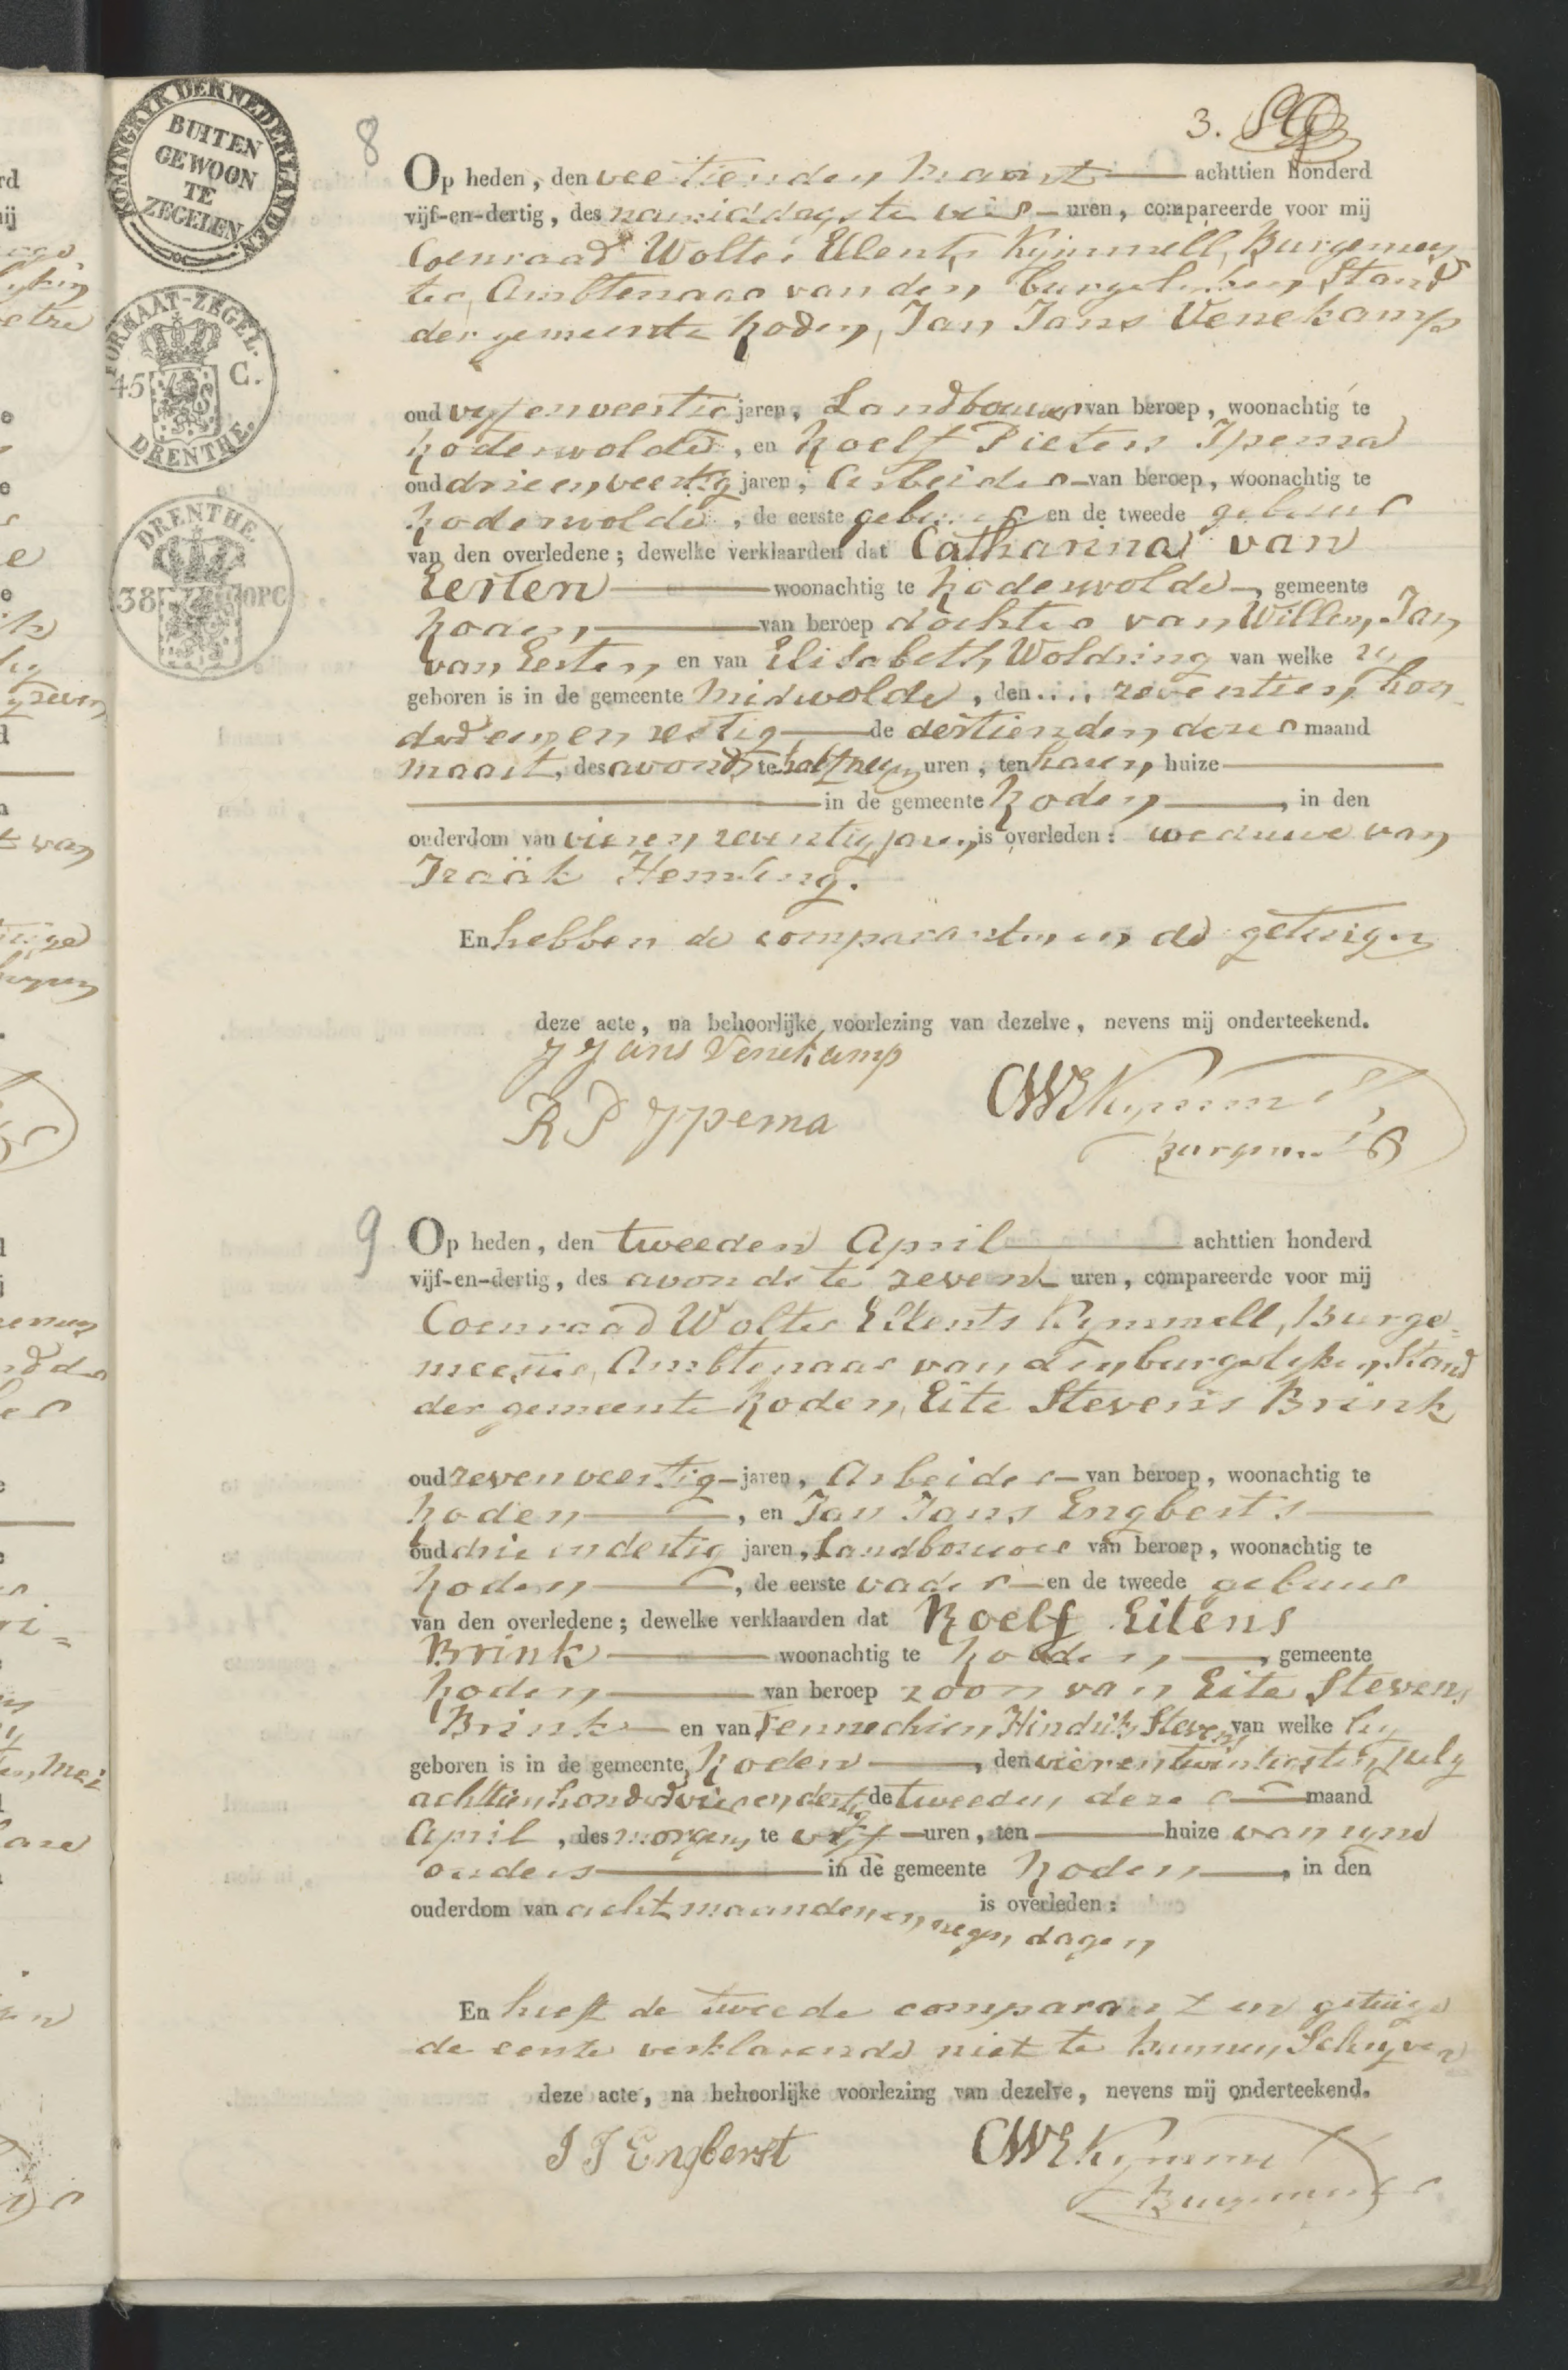 3.
KONINGRYK DER NEDERLANDEN.
BUITEN
GEWOON
TE
ZEGELEN
FORMAAT-ZEGEL.
45 C.
DRENTHE.
DRENTHE
38 OPC
8
Op heden, den veertienden Maart achttien honderd
vijf-en-dertig, des namiddags te vier uren, compareerde voor mij
Coenraad Wolter Ellents Kymmell, Burgemees
ter, Ambtenaar van den burgelyken Stand
der gemeente Roden, Jan Jans Venekamp
oud vyfenveertig jaren, Landbouwer van beroep, woonachtig te
Roderwolde, en Roelf Pieters Ipema
oud drieenveertig jaren, Arbeider van beroep, woonachtig te
Roderwolde, de eerste gebuur en de tweede gebuur
van den overledene; dewelke verklaarden dat Catharina van
Eerten woonachtig te Roderwolde, gemeente
Roden van beroep dochter van Willem Jan
van Eerten en van Elisabeth Woldring van welke zy
geboren is in de gemeente Midwolde, den .... zeventien hon
derd een en zestig de dertienden dezer maand
maart, des avonds te half negen uren, ten haren huize
in de gemeente Roden, in den
ouderdom van vier en zeventig jaren, is overleden: weduwe van
Izaäk Hemling.
En hebben de comparanten en de getuigen
deze acte, na behoorlijke voorlezing van dezelve, nevens mij onderteekend.
J Jans Venekamp
R P Ypema
CWEKymmell
Burgemr
9
Op heden, den tweeden April achttien honderd
vijf-en-dertig, des avonds te zeven uren, compareerde voor mij
Coenraad Wolter Ellents Kymmell, Burge=
meester, Ambtenaar van den burgerlyken Stand
der gemeente Roden, Eite Stevens Brink
oud zevenveertig jaren, Arbeider van beroep, woonachtig te
Roden, en Jan Jans Engberts
oud drie en dertig jaren, Landbouwer van beroep, woonachtig te
Roden, de eerste vader en de tweede gebuur
van den overledene; dewelke verklaarden dat Roelf Eitens
Brink woonachtig te Roden, gemeente
Roden van beroep zoon van Eite Stevens
Brink en van Fennechien Hindrik Stevens van welke hy
geboren is in de gemeente Roden, den vierentwintigsten July
achttienhonderd vier en dertig de tweeden dezer maand
April, des morgens te vyf uren, ten huize van zyne
ouders in de gemeente Roden, in den
ouderdom van acht maanden en negen dagen is overleden:
En heeft de tweede comparant en getuige
de eerste verklarende niet te kunnen Schryven
deze acte, na behoorlijke voorlezing van dezelve, nevens mij onderteekend.
J J Engberst
CWEKymmell
Burgemeester